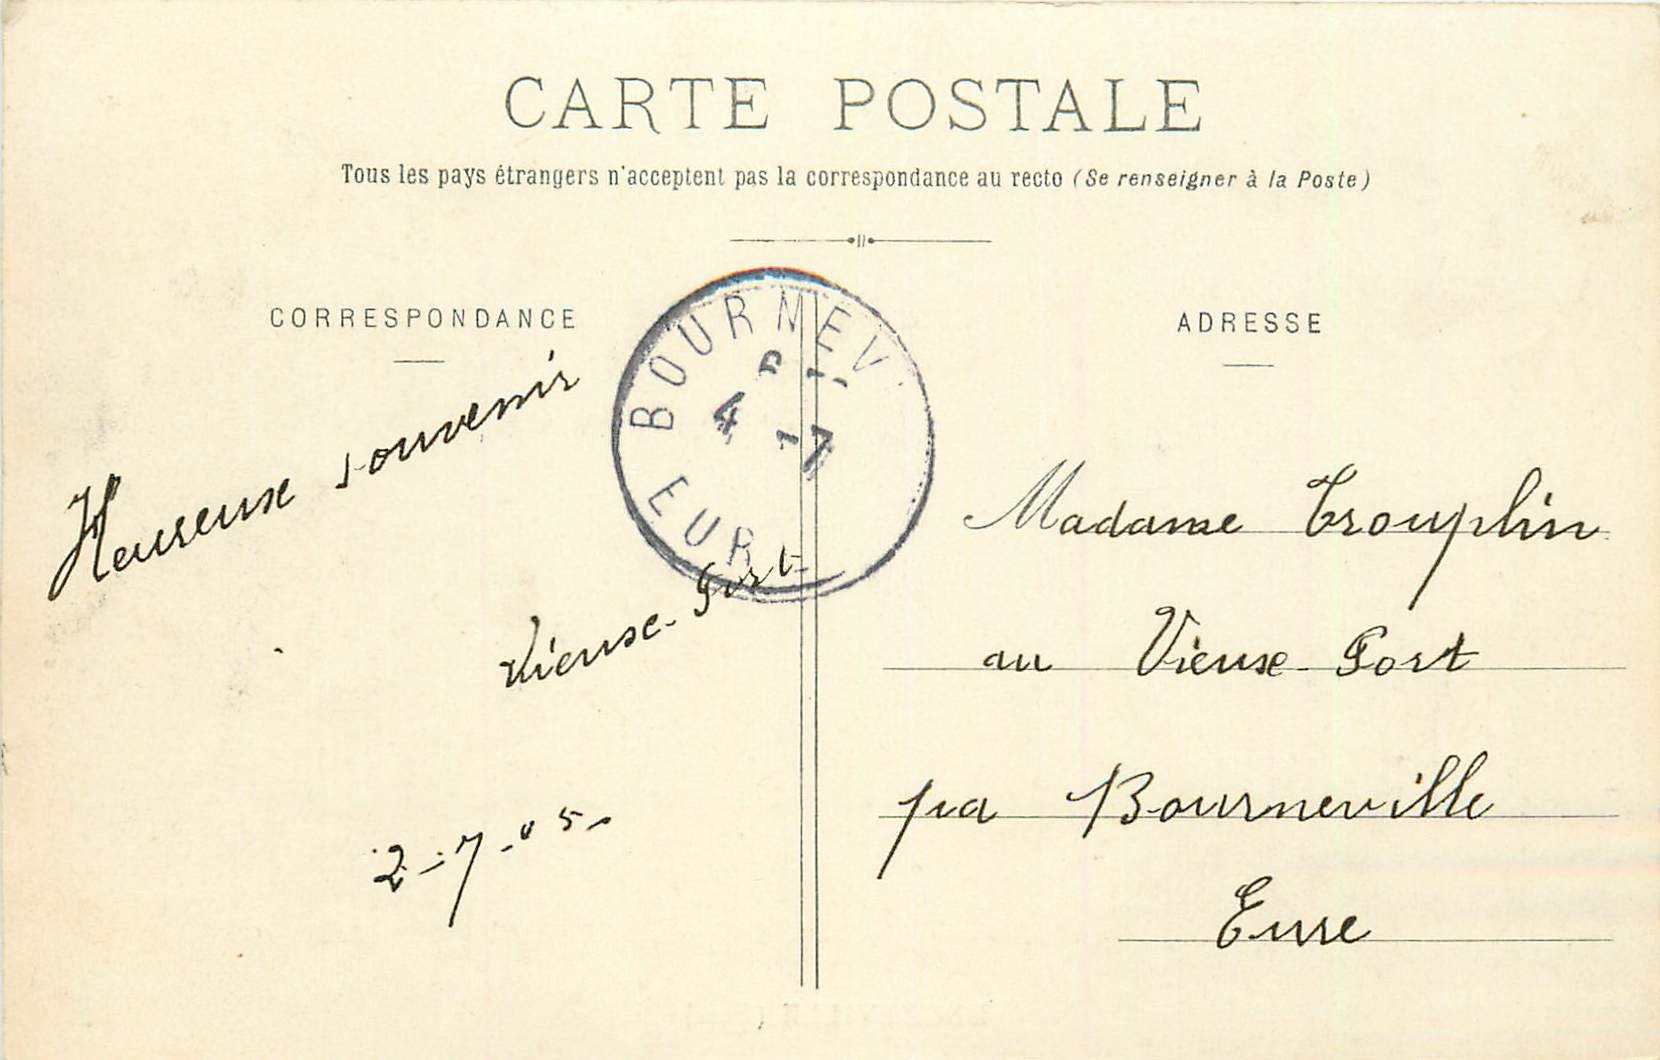 CARTE POSTALE
Tous les pays étrangers n'acceptent pas la correspondance au recto (Se renseigner à la Poste)
CORRESPONDANCE
Heureuse souvenir
Vieuxe-Port
2-7-05-
BOURNEV
4 -7
EUR
ADRESSE
Madame Trouplin
au Vieuxe-Port
pra Bourneville
Eure